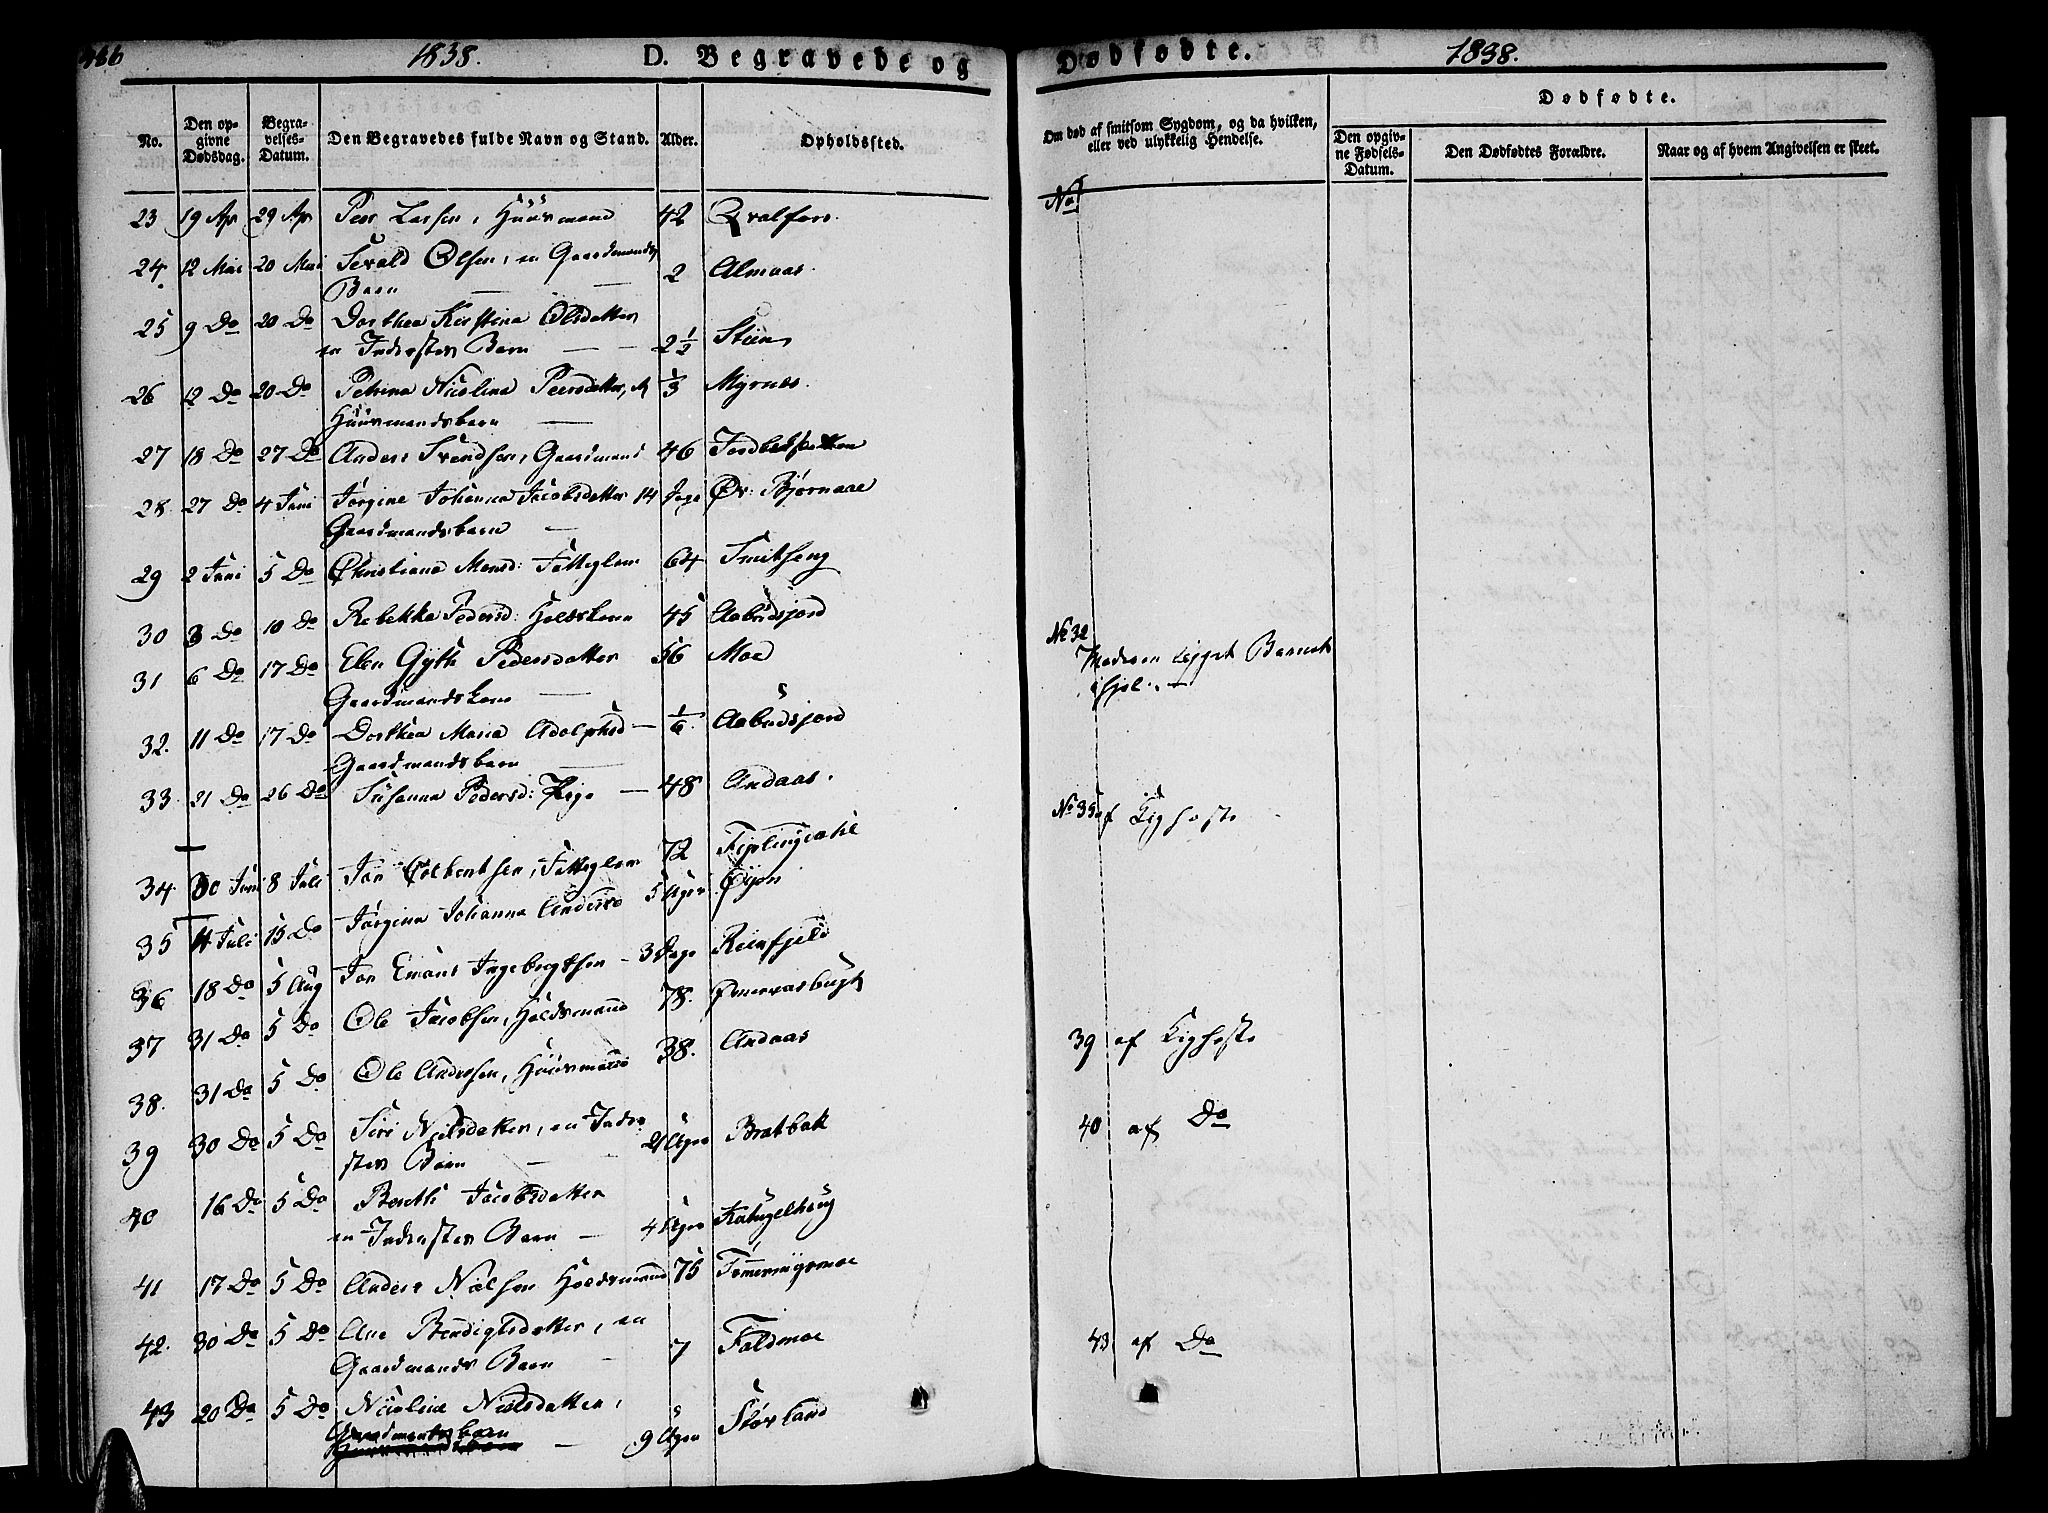 466 1838. D. Begravede og
No. Den opgivne Dødsdag. Begravelses-Datum. Den Begravedes fulde Navn og Stand. Alder. Opholdssted.
23 19 Apr 29 Apr Peer Larsen, Huusmand 42 Qvalfors
24. 12 Mai 20 Mai Sevald Olsen, en Gaardmands 2 Almaas.
Barn
25 9 Do 20 Do Dorthea Kirstina Olsdatter
en Inderstes Barn 2 1/2 Steen
26 12 Do 20 Do Petrina Nicolina Peersdatter, et 1/3 Myrnes.
Huusmandsbarn
27 18 Do 27 Do Anders Svendsen, Gaardmand 46
28. 27 Do 4 Juni Jørgine Johanna Jacobsdatter 14 Dage Øv: Bjørnaae
Gaardmandsbarn
29 2 Juni 5 Do Christiana Monsd: Fattiglem 64 Smitseng
30 3 Do 10 Do Rebekka Pedersd: Holdskone 45 Aabudsjord
31 6 Do 17 Do Elen Gyth Pedersdatter 56 Moe
Gaardmandskone
32. 11 Do 17 Do Dorthea Maria Adolphsd 1/6 Aabudsjord
Gaardmandsbarn
33. 21 Do 26 Do Susanna Pedersd: Pige 48 Andaas.
34. 30 Juni 8 Juli Jon Fattiglem 72 Fiplingdahl
35 4 Juli 15 Do Jørgina Johanna Andersd 5 Uger Øyen
36 18 Do 5 Aug Jon Emans Ingebrigtsen 3 Dage Reinfjeld
37 31 Do 5 Do Ole Jacobsen, Holdsmand 78.
38. 31 Do 5 Do Ole Andersen, Huusmand 38. Andaas
39 30 Do 5 Do Siri Nielsdatter, en Inder- 21 Uger Bratbak
stes Barn
40 16 Do 5 Do Berethe Jacobsdatter
en Inderstes Barn 4 Uger Katugelhaug
41 17 Do 5 Do Anders Nielsen Holdsmand 75 Tømmeringsmoe
42. 30 Do 5 Do Ane Bendigtsdatter, en
Gaardmands Barn 7 Faldmoe
43 20 Do 5 Do Nicoline Nielsdatter,
Gaardmandsbarn 9 Uger Storland
Dødfødte. 1838.
Om død af smitsom Sygdom, og da hvilken, eller ved ulykkelig Hendelse. Dødfødte.
Den opgivne Fødsels-Datum. Den Dødfødtes Forældre. Naar og af hvem Angivelsen er skeet.
No
No 32
Moderen ligget Barnet
ihjel.
No 35 af Kighoste
39 af Kighoste
40 af Do
43 af Do